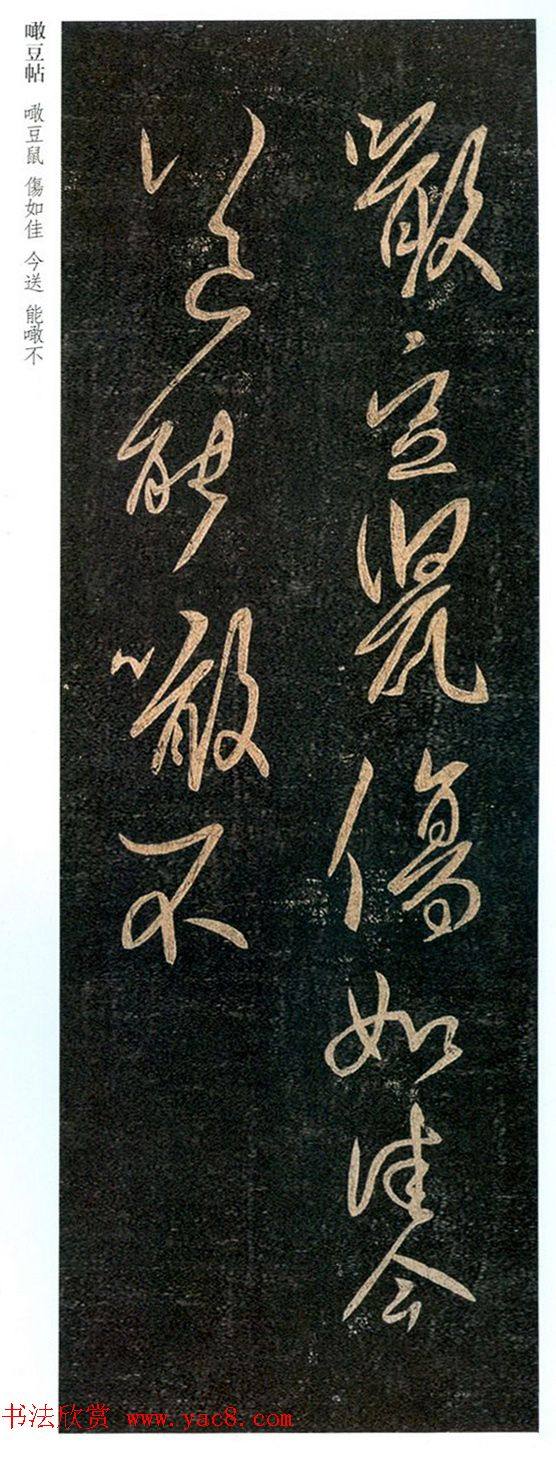 噉豆鼠傷如佳今
送能噉不
噉豆帖 噉豆鼠 傷如佳 今送 能噉不
书法欣赏 www.yac8.com